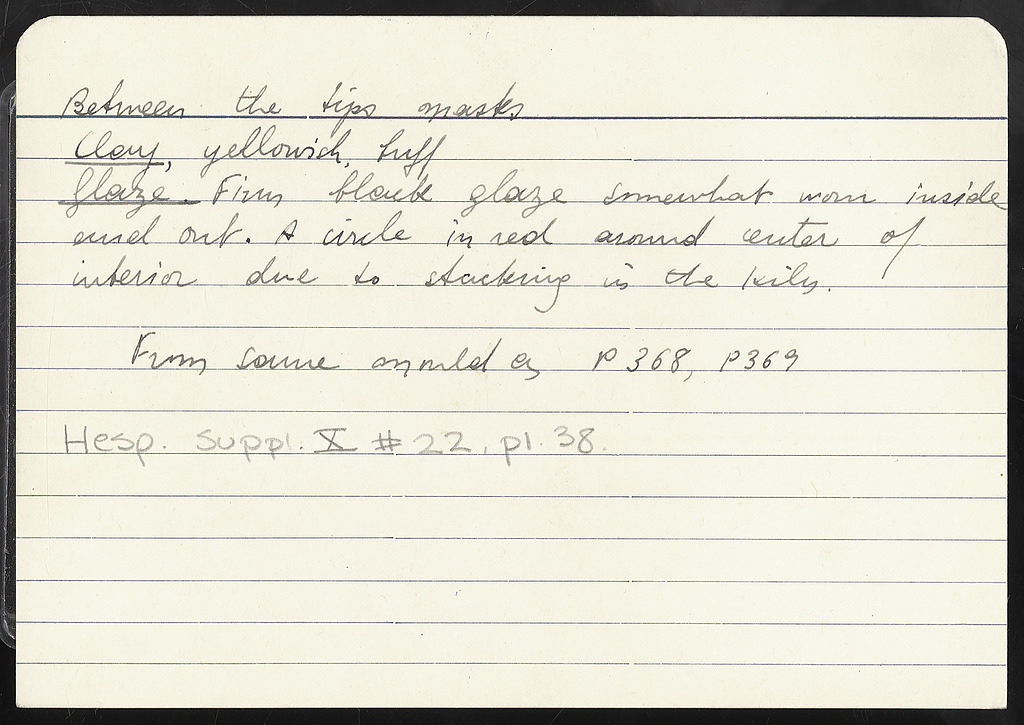 Between the tips masks
Clay, yellowish, buff
Glaze. Firm black glaze somewhat worn inside
and out. A circle in red around center of
interior due to stacking in the kiln.
From same mould as P 368, P369
Hesp. Suppl. X # 22, pl. 38.